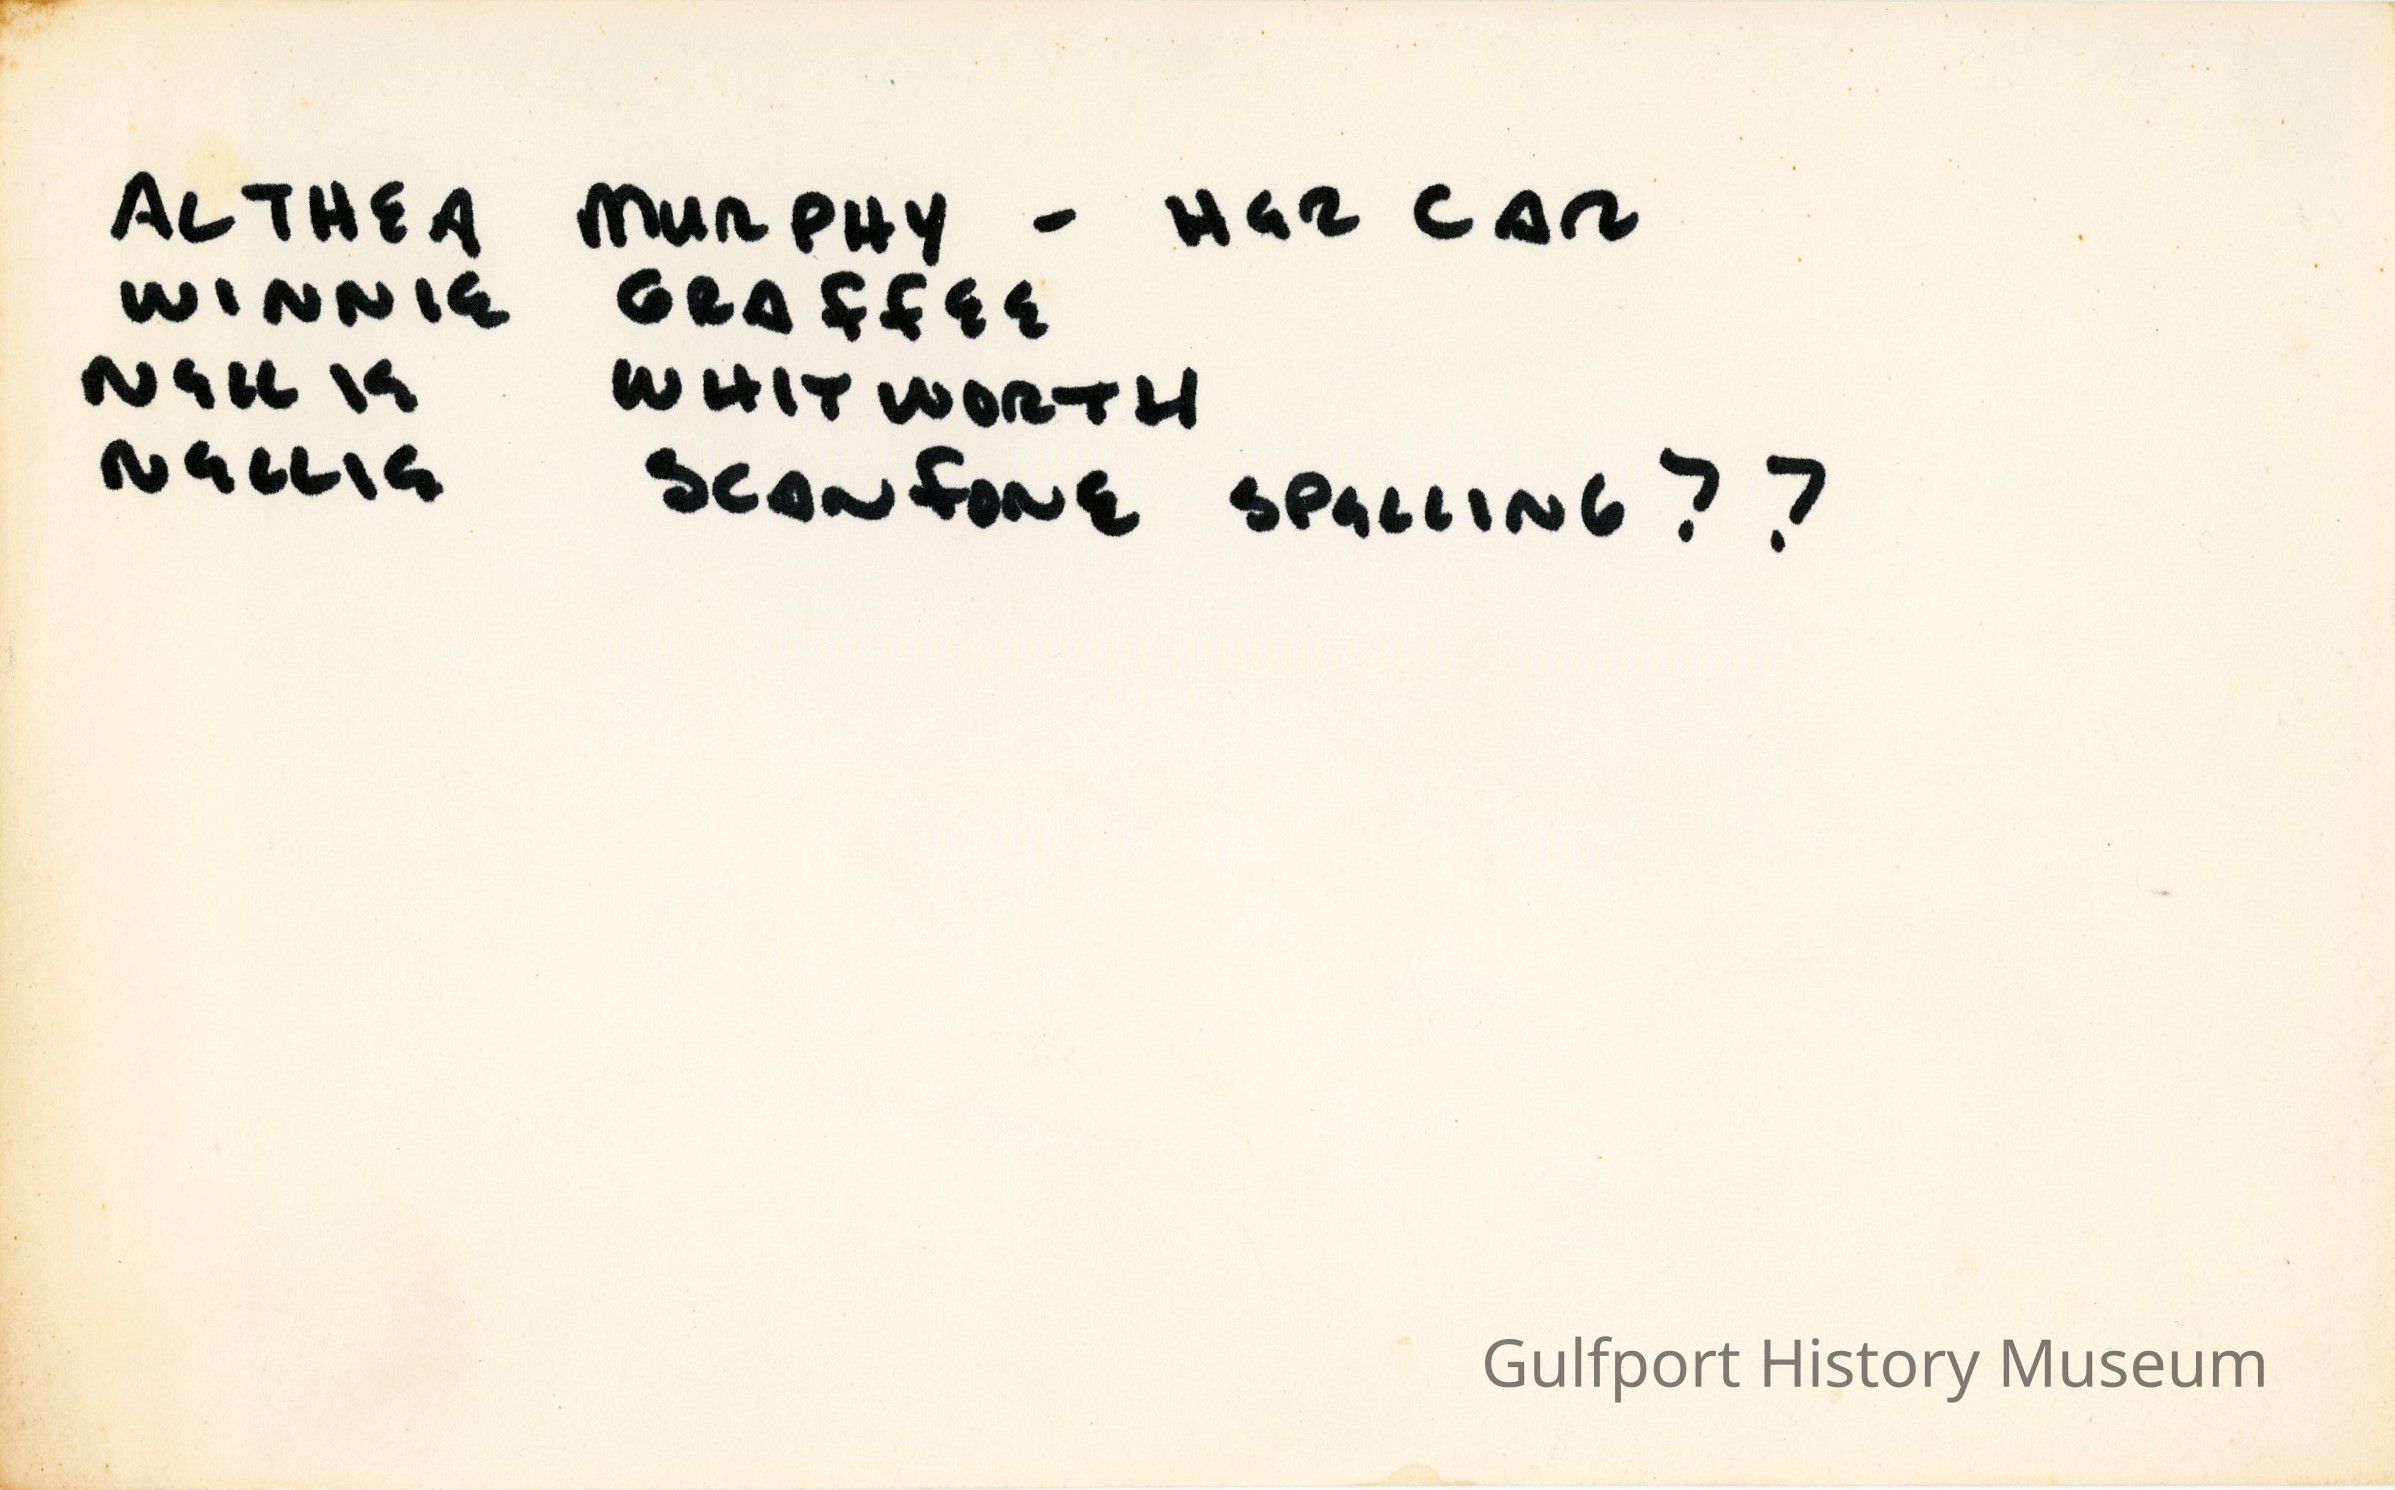 ALTHEA MURPHY - HER CAR
WINNIE GRAFFEE
NELLIE WHITWORTH
NELLIE SCANFONE SPELLING??
Gulfport History Museum